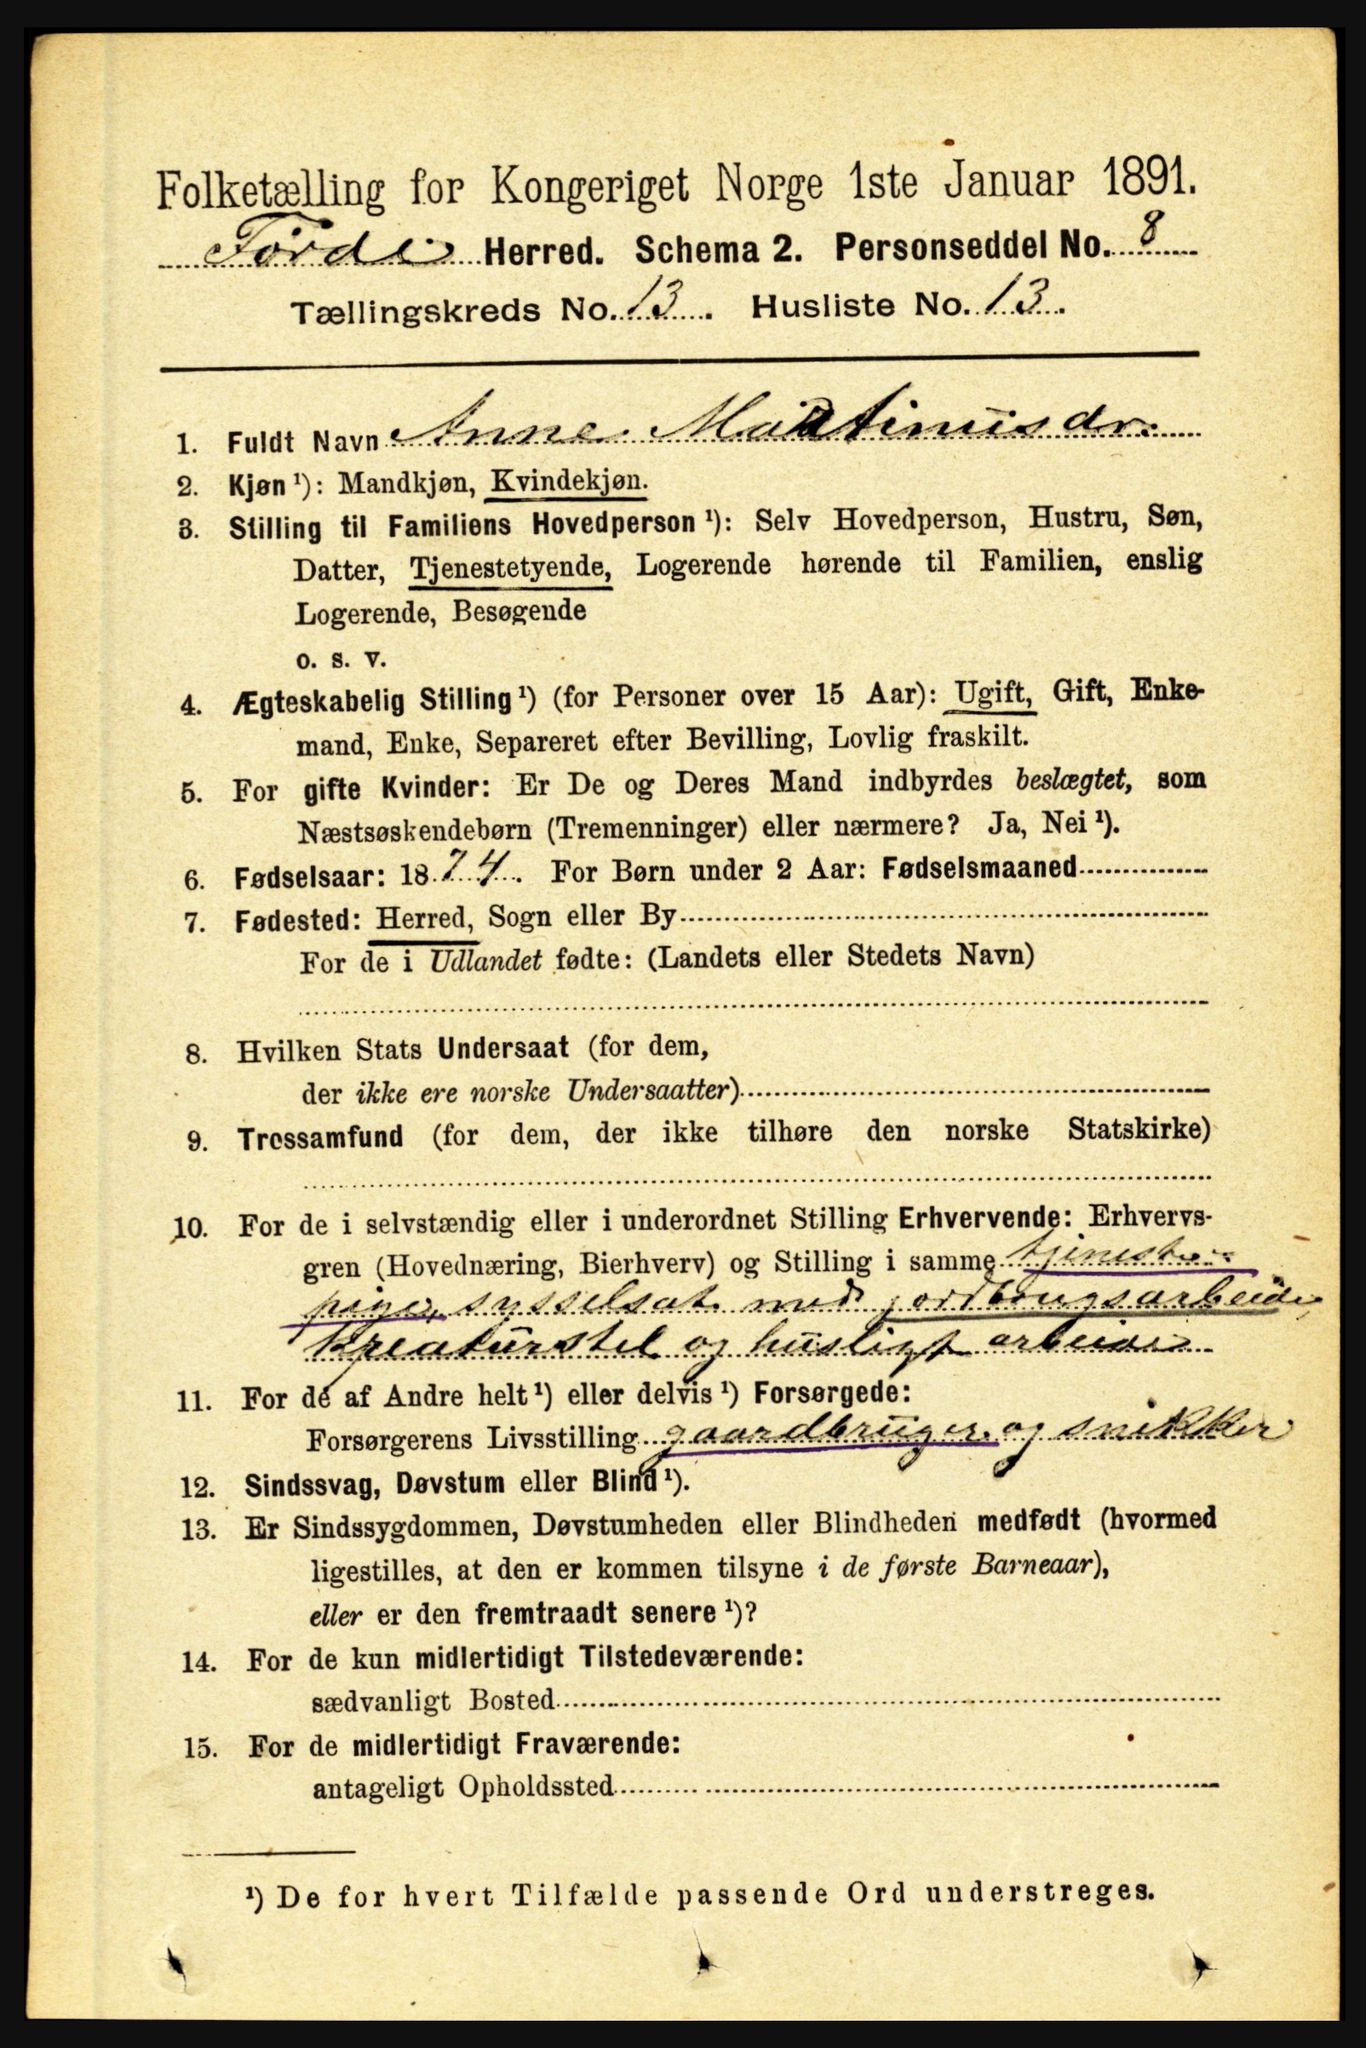 Folketælling for Kongeriget Norge 1ste Januar 1891.
Førde Herred. Schema 2. Personseddel No. 8
Tællingskreds No. 13. Husliste No. 13.
1. Fuldt Navn Anne Martinusdr.
2. Kjøn ¹): Mandkjøn, Kvindekjøn.
3. Stilling til Familiens Hovedperson ¹): Selv Hovedperson, Hustru, Søn,
Datter, Tjenestetyende, Logerende hørende til Familien, enslig
Logerende, Besøgende
o. s. v.
4. Ægteskabelig Stilling ¹) (for Personer over 15 Aar): Ugift, Gift, Enke-
mand, Enke, Separeret efter Bevilling, Lovlig fraskilt.
5. For gifte Kvinder: Er De og Deres Mand indbyrdes beslægtet, som
Næstsøskendebørn (Tremenninger) eller nærmere? Ja, Nei ¹).
6. Fødselsaar: 1874. For Børn under 2 Aar: Fødselsmaaned
7. Fødested: Herred, Sogn eller By
For de i Udlandet fødte: (Landets eller Stedets Navn)
8. Hvilken Stats Undersaat (for dem,
der ikke ere norske Undersaatter)
9. Trossamfund (for dem, der ikke tilhøre den norske Statskirke)
10. For de i selvstændig eller i underordnet Stilling Erhvervende: Erhvervs-
gren (Hovednæring, Bierhverv) og Stilling i samme tjeneste-
pige, sysselsat med jordbrugsarbeide,
kreaturstel og husligt arbeide
11. For de af Andre helt ¹) eller delvis ¹) Forsørgede:
Forsørgerens Livsstilling gaardbruger og snekker
12. Sindssvag, Døvstum eller Blind ¹).
13. Er Sindssygdommen, Døvstumheden eller Blindheden medfødt (hvormed
ligestilles, at den er kommen tilsyne i de første Barneaar),
eller er den fremtraadt senere ¹)?
14. For de kun midlertidigt Tilstedeværende:
sædvanligt Bosted
15. For de midlertidigt Fraværende:
antageligt Opholdssted
¹) De for hvert Tilfælde passende Ord understreges.